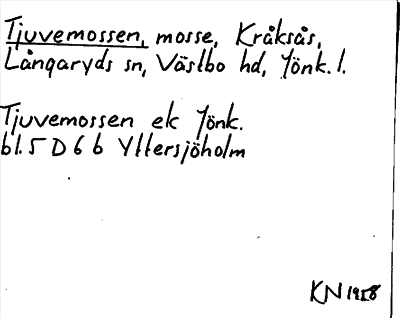 Tjuvemossen, mosse, Kråksås,
Långaryds sn, Västbo hd, Jönk. l.
Tjuvemossen ek Jönk.
bl. 5 D 6 b Yttersjöholm
KN 1958